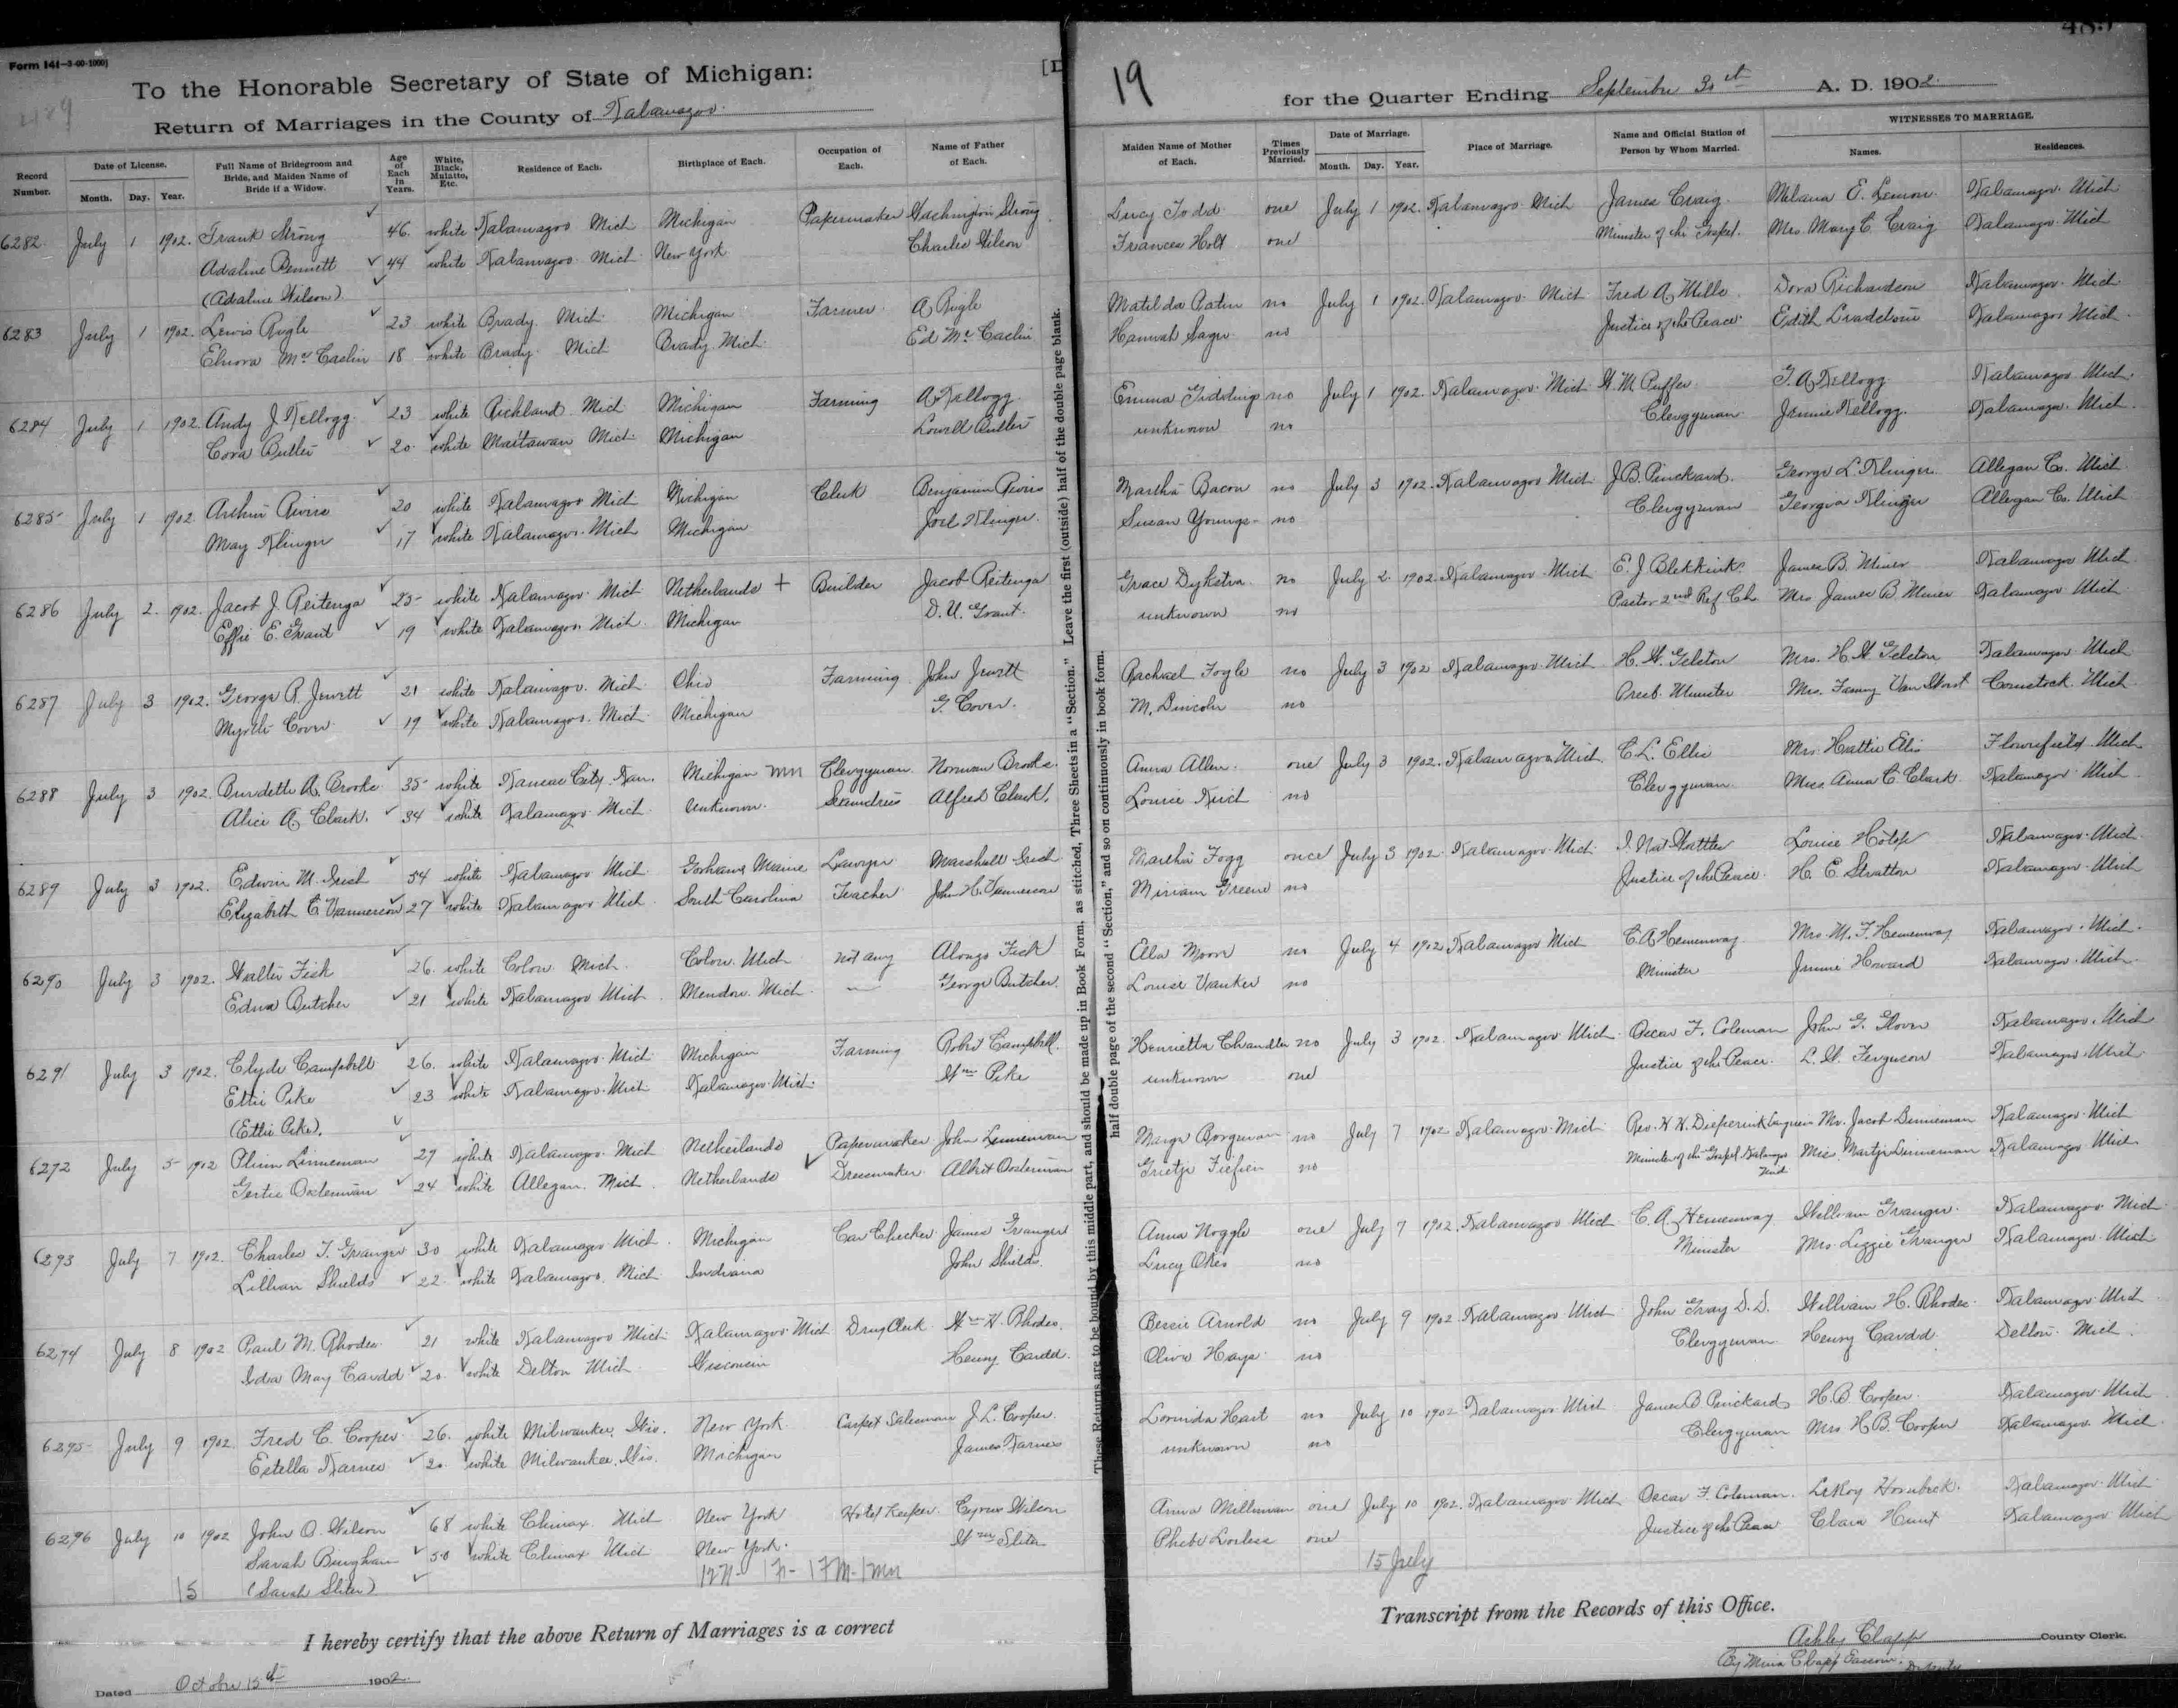 Form 141-3-00-1000)
To the Honorable Secretary of State of Michigan:
Return of Marriages in the County of Kalamazoo
19
for the Quarter Ending September 30st A. D. 1902
Record Number.
Date of License.
Month. Day. Year.
Full Name of Bridegroom and Bride, and Maiden Name of Bride if a Widow.
Age of Each in Years.
White, Black, Mulatto, Etc.
Residence of Each.
Birthplace of Each.
Occupation of Each.
Name of Father of Each.
Maiden Name of Mother of Each.
Times Previously Married.
Date of Marriage.
Month. Day. Year.
Place of Marriage.
Name and Official Station of Person by Whom Married.
WITNESSES TO MARRIAGE.
Names.
Residences.
6282 July 1 1902. Frank Strong 46 white Kalamazoo Mich Michigan Papermaker Washington Strong Lucy Todd one July 1 1902. Kalamazoo Mich James Craig Milana E. Lemon Kalamazoo Mich
Adaline Bennett 44 white Kalamazoo Mich New York Charles Wilson Frances Holt one Minister of the Gospel. Mrs Mary C. Craig Kalamazoo Mich
(Adaline Wilson)
6283 July 1 1902. Lewis Rugle 23 white Brady Mich Michigan Farmer A Rugle Matilda no July 1 1902. Kalamazoo Mich Fred A Mills Dora Richardson Kalamazoo Mich
Elnora Mc Caslin 18 white Brady Mich Brady Mich Ed Mc Caslin Hannah no Justice of the Peace Edith Kalamazoo Mich
6284 July 1 1902. Andy J Kellogg 23 white Richland Mich Michigan Farming A Kellogg Emma Giddings no July 1 1902. Kalamazoo Mich W. M. Puffer G. A Kellogg Kalamazoo Mich.
Cora Butler 20 white Mattawan Mich Michigan Lowell Butler unknown no Clergyman Jennie Kellogg. Kalamazoo Mich.
6285 July 1 1902. Arthur 20 white Kalamazoo Mich Michigan Clerk Benjamin Martha Bacon no July 3 1902. Kalamazoo Mich J. B. Pinckard. George L. Klinger Allegan Co. Mich
May Klinger 17 white Kalamazoo Mich Michigan Joel Klinger. Susan Youngs no Clergyman Georgia Klinger Allegan Co. Mich
6286 July 2 1902. Jacob J. Reitenga 25 white Kalamazoo Mich Netherlands + Builder Jacob Reitenga Grace Dykstra no July 2 1902. Kalamazoo Mich E. J Blekkink James B. Miner Kalamazoo Mich
Effie E. Grant 19 white Kalamazoo Mich Michigan D. U. Grant. unknown no Pastor 2nd Ref Ch. Mrs James B. Miner Kalamazoo Mich
6287 July 3 1902. George R. Jewett 21 white Kalamazoo Mich Ohio Farming John Jewett Rachael Fogle no July 3 1902 Kalamazoo Mich H. W. Gelston Mrs. H W Gelston Kalamazoo Mich
Myrtle Cover 19 white Kalamazoo Mich Michigan G. Cover. M. Lincoln no Presb. Minister Mrs. Fanny Van Comstock Mich
6288 July 3 1902. Burdette A. Brooks 35 white Kansas City Kan. Michigan mn Clergyman Norman Brooks Anna Allen one July 3 1902. Kalamazoo Mich C. L. Ellis Mrs. Hattie Flowerfield Mich
Alice A. Clark. 34 white Kalamazoo Mich unknown Seamstress Alfred Clark. Louise no Clergyman Miss Anna C. Clark Kalamazoo Mich
6289 July 3 1902. Edwin M. Irish 54 white Kalamazoo Mich Gorham Maine Lawyer Marshall Irish Martha Fogg once July 3 1902. Kalamazoo Mich Louise Kalamazoo Mich.
Elizabeth C Vannerson 27 white Kalamazoo Mich South Carolina Teacher John H. Vannerson Miriam Greene no Justice of the Peace. H. E. Stratton Kalamazoo Mich
6290 July 3 1902. Walter Fisk 26 white Colon Mich Colon Mich not any Alonzo Fisk Ella Moore no July 4 1902 Kalamazoo Mich C. A Hemenway Mrs. M. F. Hemenway Kalamazoo. Mich.
Edna Butcher 21 white Kalamazoo Mich Mendon Mich — George Butcher Louise no Minister Jennie Howard Kalamazoo. Mich.
6291 July 3 1902. Clyde Campbell 26. white Kalamazoo Mich Michigan Farming Robert Campbell. Henrietta Chandler no July 3 1902. Kalamazoo Mich Oscar F. Coleman John G. Glover Kalamazoo. Mich
Ettie Pike 23 white Kalamazoo Mich Kalamazoo Mich Wm Pike unknown one Justice of the Peace. L. W. Ferguson Kalamazoo Mich
(Ettie Pike).
6292 July 5 1902 Linneman 27 white Kalamazoo Mich Netherlands Papermaker John Linneman Borgman no July 7 1902 Kalamazoo Mich Rev. Mr. Jacob Linneman Kalamazoo Mich
Gertie Oosterman 24 white Allegan. Mich Netherlands Dressmaker Albert Oosterman Grietje no Minister of the Gospel Kalamazoo Mich Miss Martje Linneman Kalamazoo Mich
6293 July 7 1902. Charles T. Granger 30 white Kalamazoo Mich Michigan Car Checker James Granger Anna Noggle one July 7 1902. Kalamazoo Mich C. A. Hemenway William Granger Kalamazoo Mich
Lillian Shields 22 white Kalamazoo Mich Indiana John Shields. Lucy no Minister Mrs. Lizzie Granger Kalamazoo Mich
6294 July 8 1902 Paul M. Rhodes 21 white Kalamazoo Mich Kalamazoo Mich Drug Clerk Wm H. Rhodes. Bessie Arnold no July 9 1902 Kalamazoo Mich John Gray D. D. William H. Rhodes Kalamazoo Mich
Ida May 20 white Delton Mich Wisconsin Henry Olive Hays no Clergyman Henry Delton Mich
6295 July 9 1902. Fred C. Cooper 26. white Milwaukee, Wis. New York Carpet Salesman J. L. Cooper. Lorinda Heart no July 10 1902 Kalamazoo Mich James B Pinckard H. B Cooper Kalamazoo Mich
Estella Karnes 20 white Milwaukee, Wis. Michigan James Karnes unknown no Clergyman Mrs H B. Cooper Kalamazoo Mich
6296 July 10 1902 John O. Wilson 68 white Climax Mich New York Hotel Keeper Cyrus Wilson Anna one July 10 1902. Kalamazoo Mich Oscar F. Coleman. LeRoy Hornbeck. Kalamazoo Mich
Sarah Bingham 50 white Climax Mich New York. Wm Sliter Phebe one Justice of the Peace Clara Hunt Kalamazoo Mich
15 (Sarah Sliter)
15 July
These Returns are to be bound by this middle part, and should be made up in Book Form, as stitched, Three Sheets in a "Section." Leave the first (outside) half of the double page blank.
half double page of the second "Section," and so on continuously in book form.
I hereby certify that the above Return of Marriages is a correct
Transcript from the Records of this Office.
Dated October 15th 1902
Ashley Clapp County Clerk.
By Clapp Deputy